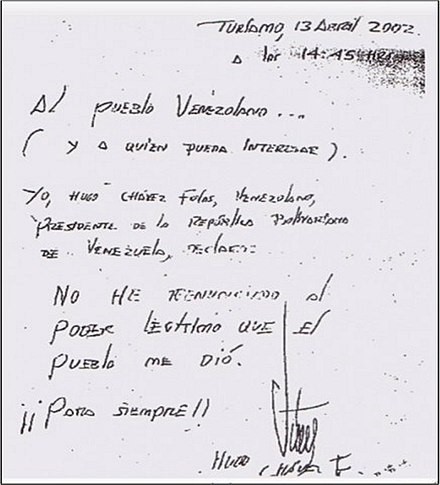 Turiamo, 13 Abril 2002.
a las 14:45 Horas
Al pueblo Venezolano...
( y a quien pueda interesar ).
Yo, Hugo Chávez Frías, Venezolano,
Presidente de la República Bolivariana
de Venezuela, declaro:
No he renunciado al
poder legítimo que el
pueblo me dió.
¡¡Para siempre!!
Hugo Chávez F.